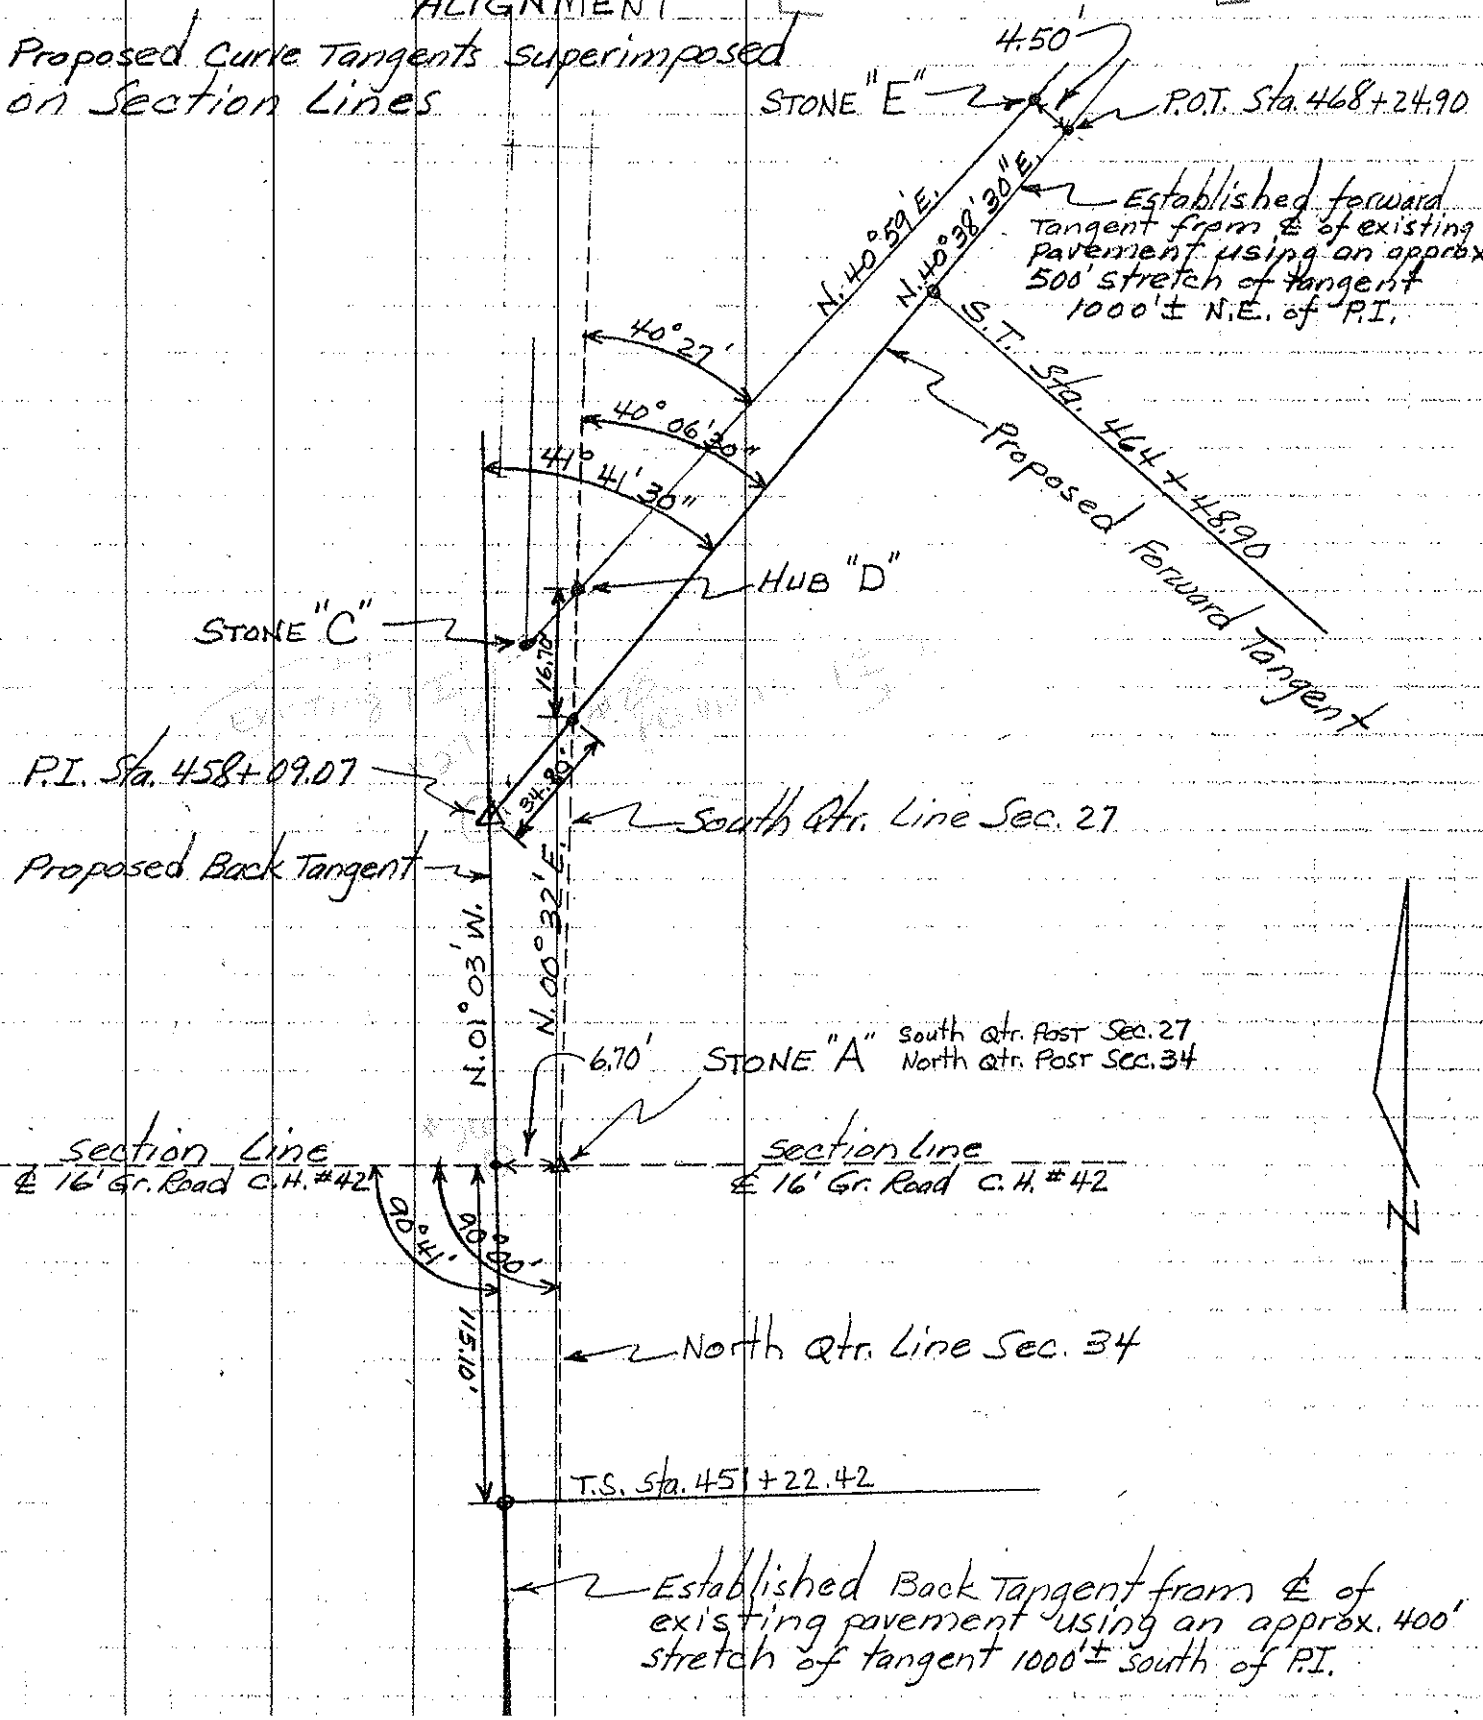 ALIGNMENT
Proposed Curve Tangents superimposed
on Section Lines
4.50'
STONE "E"
P.O.T. Sta. 468+24.90
N. 40° 59' E.
N. 40° 38' 30" E.
Established forward
Tangent from ℄ of existing
pavement using an approx
500' stretch of tangent
1000'± N.E. of P.I.
40° 27'
S.T. Sta. 464+48.90
40° 06' 30"
Proposed Forward Tangent
41° 41' 30"
HUB "D"
STONE "C"
16.70'
P.I. Sta. 458+09.07
34.80'
South Qtr. Line Sec. 27
Proposed Back Tangent
N. 01° 03' W.
N. 00° 32' E.
6.70'
STONE "A"
South Qtr. Post Sec. 27
North Qtr. Post Sec. 34
section Line
℄ 16' Gr. Road C.H. #42
section line
℄ 16' Gr. Road C.H. #42
90° 41'
90° 00'
N
115.10'
North Qtr. Line Sec. 34
T.S. Sta. 451+22.42
Established Back Tangent from ℄ of
existing pavement using an approx. 400'
stretch of tangent 1000'± south of P.I.